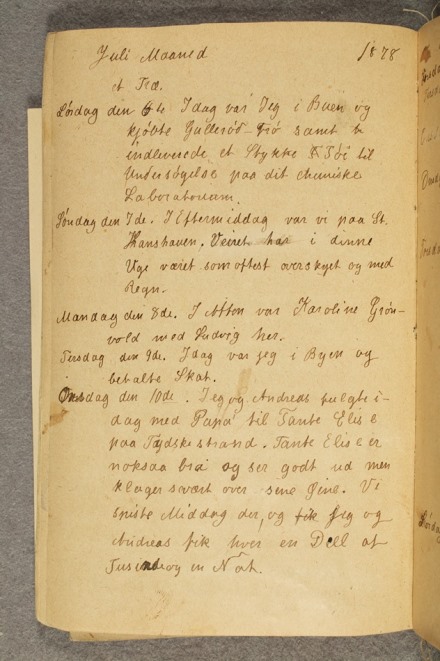 Juli Maaned 1878
et Træ.
Lørdag den 6te. Idag var Jeg i Buen og
kjøbte Gullerød-Frö samt
indleverede et Stykke Töi til
Undersögelse paa dit chemiske
Laboratorium.
Søndag den 7de. I Eftermiddag var vi paa St.
Hanshaven. Veiret har i dinne
Uge været som oftest overskyet og med
Regn.
Mandag den 8de. I Aften var Karoline Grøn-
vold med Ludvig her.
Tirsdag den 9de. Idag var jeg i Byen og
betalte Skat.
Onsdag den 10de. Jeg og Andreas fulgte i-
dag med Papa til Tante Elise
paa Tydskestrand. Tante Elise er
noksaa bra og ser godt ud men
klager svært over sine Øine. Vi
spiste Middag der, og fik Jeg og
Andreas fik hver en Deel af
Tusind og en Nat.